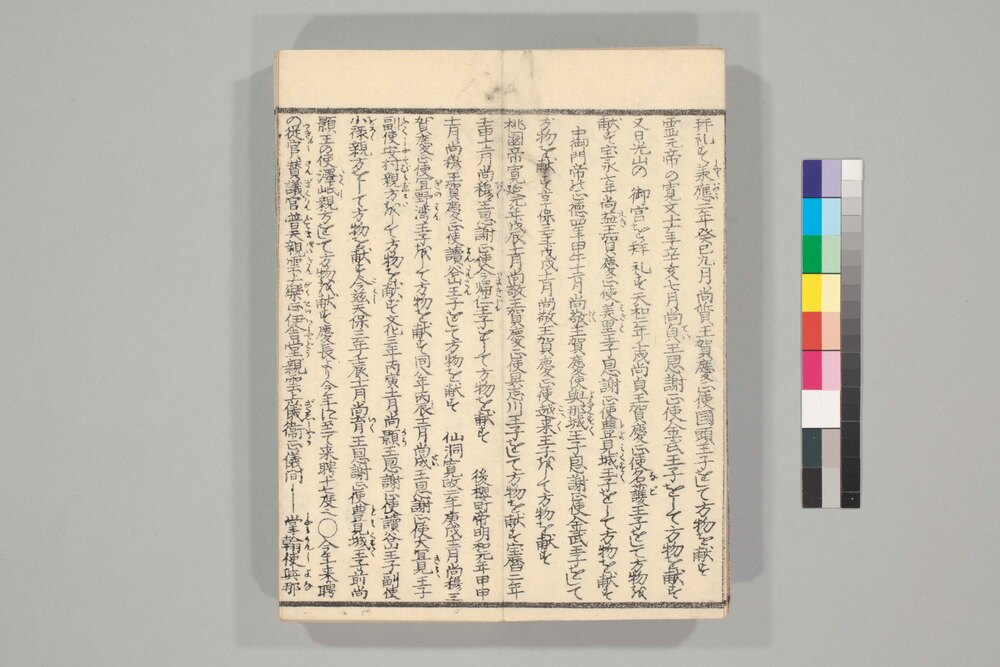 拝礼す承應二年癸巳九月尚質王賀慶正使國頭王子をして方物を献す
霊元帝の寛文十一年辛亥七月尚貞王恩謝正使金武王子をして方物を献す
又日光山の 御宮を拝礼す天和二年壬戌尚貞王賀慶正使名護王子をして方物を
献す宝永七年尚益王賀慶正使美里王子恩謝正使豊見城王子をして方物を献す
中御門帝正徳四年甲午十二月尚敬王賀慶使與那城王子恩謝使金武王子をして
方物を献す享保三年戊戌十一月尚敬王賀慶正使越来王子をして方物を献す
桃園帝寛延元年戊辰十二月尚敬王賀慶正使具志川王子をして方物を献す宝暦二年
壬申十二月尚穆王恩謝正使今帰仁王子をして方物を献す 後櫻町帝明和元年甲申
十一月尚穆王賀慶正使讀谷山王子をして方物を献す 仙洞寛政二年庚戌十二月尚穆王
賀慶正使宜野湾王子をして方物を献す同八年丙辰十二月尚成王恩謝正使大宜見王子
副使安村親方をして方物を献す文化三年丙寅十一月尚顥王恩謝正使讀谷山王子副使
小禄親方をして方物を献す今茲天保三年壬辰十一月尚育王恩謝正使豊見城王子前尚
顥王の使澤岻親方をして方物を献す慶長より今年に至て来聘十七度之〇今年来聘
の従官賛議官普天親雲上樂正伊舎堂親雲上儀衛正儀間 掌翰使與那